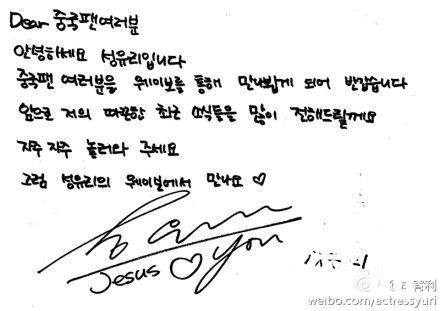 Dear 중국팬여러분
안녕하세요 성유리입니다
중국팬 여러분을 웨이보를 통해 만나뵙게 되어 반갑습니다
앞으로 저의 따끈한 최근 소식들을 많이 전해드릴께요
자주 자주 놀러와 주세요
그럼 성유리의 웨이보에서 만나요 ♡
Jesus ♡ you
weibo.com/actressyuri